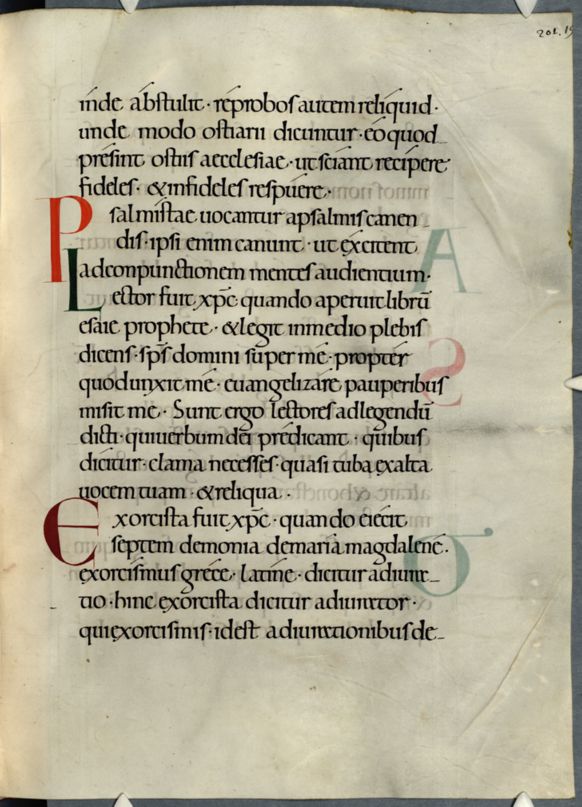 201. 19
inde abstulit · reprobos autem reliquid ·
unde modo ostiarii dicuntur · eo quod
presint ostiis aecclesiae · ut sciant recipere
fideles · & infideles respuere ·
Psalmistae uocantur apsalmis canen
dis · ipsi enim canunt · ut excitent
ad conpunctionem mentes audientium ·
Lector fuit xp̄c · quando aperuit librū
esaie prophete · & legit inmedio plebis
dicens · sp̄s domini super me · propter
quod unxit me · euangelizare pauperibus
misit me · Sunt ergo lectores ad legendū
dicti · qui uerbum dei predicant · quibus
dicitur · clama ne cesses · quasi tuba exalta
uocem tuam · & reliqua ·
Exorcista fuit xp̄c · quando eiecit
septem demonia de maria magdalene ·
exorcismus grece · latine · dicitur adiura_
tio · hinc exorcista dicitur adiurator ·
qui exorcismis · id est adiurationibus de_